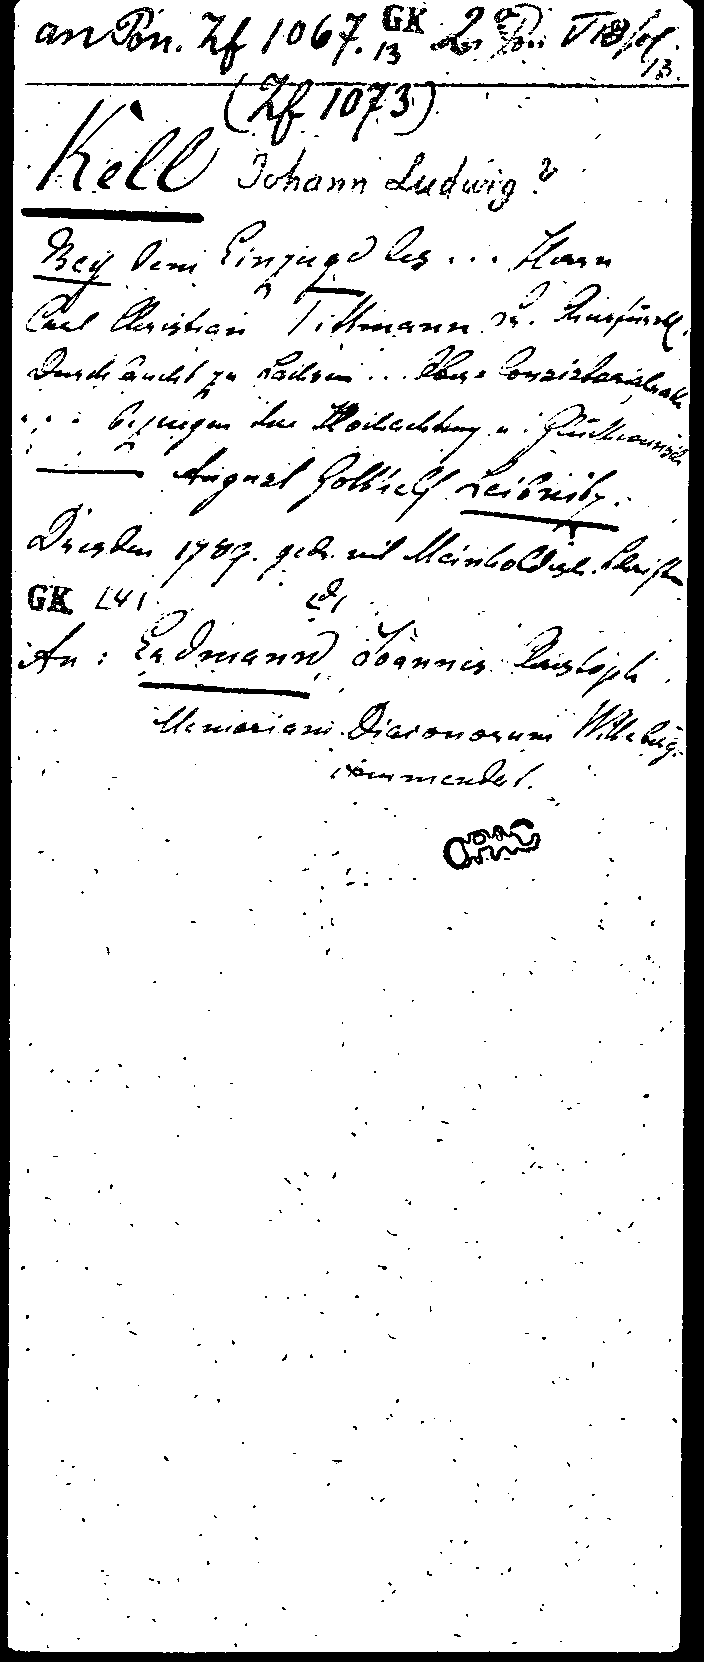 an Pon. Zf 1067. GK 13 2 an Pon VI 18 fol. 13.
(Zf 1073)
Kell Johann Ludwig?
Bey dem Einzuge des ... Herrn
Carl Christian Tittmann Sr. Churfürstl.
Durchlaucht zu Sachsen ... Ober-Consistorialrath
... bezeugen ihre Hochachtung u. Glückwünsche
August Gotthelf Leibnitz.
Dresden 1789. gedr. mit Meinholdisch. Schriften
GK (4)
An: Erdmann, Joannes Christoph
Memoriam Diaconorum Witteberg.
commendat.